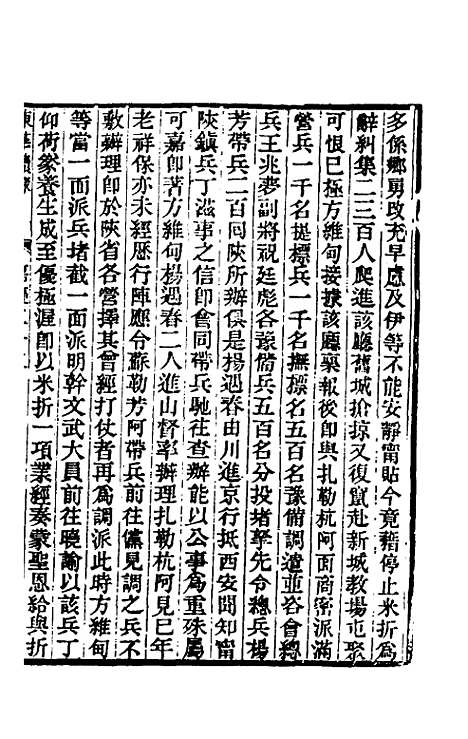 多係鄉勇改充早慮及伊等不能安靜甯貼今竟藉停止米折為
辭糾集二三百人爬進該廳舊城搶掠又復竄赴新城教場屯聚
可恨已極方維甸接據該廳稟報後即與扎勒杭阿面商密派滿
營兵一千名提標兵一千名撫標名五百名豫備調遣並咨會總
兵王兆夢副將祝廷彪各豫備兵五百名分投堵拏先令總兵楊
芳帶兵二百回陝所辦俱是楊遇春由川進京行抵西安聞知甯
陝鎮兵丁滋事之信即會同帶兵馳往查辦能以公事為重殊屬
可嘉即著方維甸楊遇春二人進山督率辦理扎勒杭阿見已年
老祥保亦未經歷行陣應令蘇勒芳阿帶兵前往儻見調之兵不
敷辦理即於陝省各營擇其曾經打仗者再為調派此時方維甸
等當一面派兵堵截一面派明幹文武大員前往曉諭以該兵丁
仰荷豢養生成至優極渥即以米折一項業經奏蒙聖恩給與折